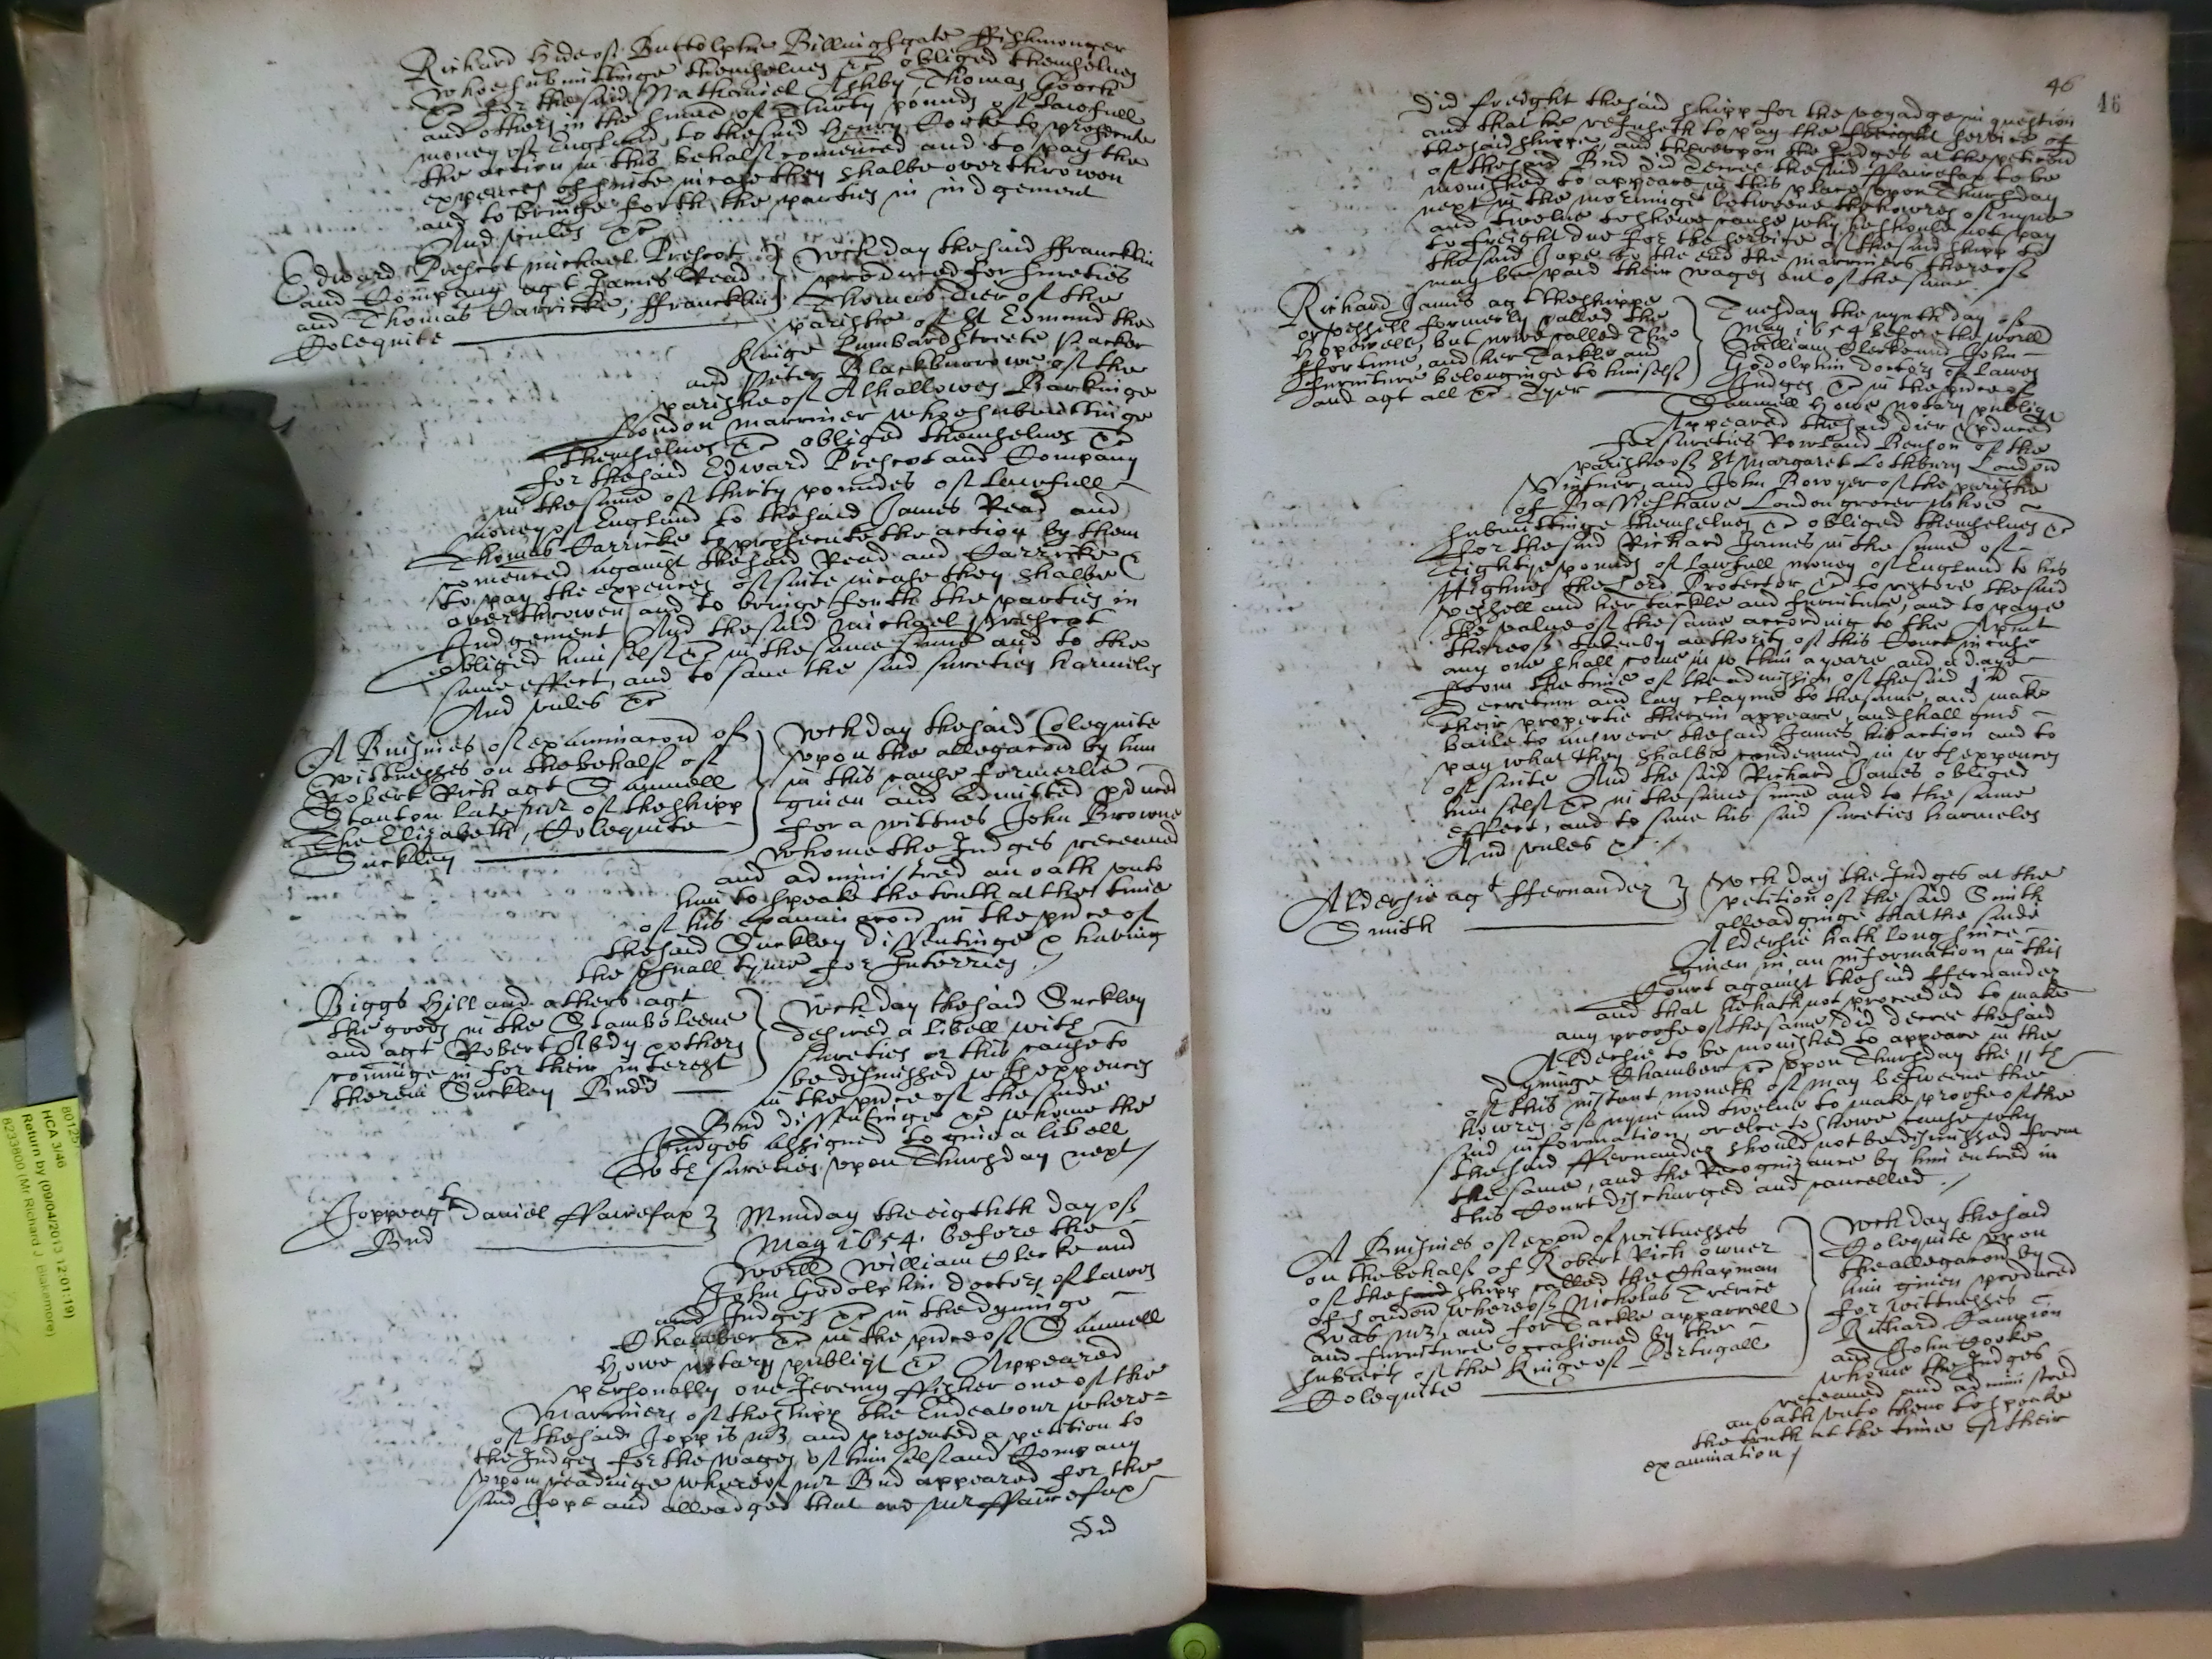 Richard Hide of Buttolphe Billinghgate ffishmonger
whoe submittinge themselves &c obliged themselves
&c for the said Nathaniel Ashby, Thomas Gooch
and others in the summe of Thirty pounds of lawfull
money of England, to the said Henry Cocke to prosecute
the action in this behalf comenced and to pay the
expences of suite in case they shalbe overthrowen
and to bringe forth the parties in iudgement
And soules &c
Edward Prescot michael Prescot
and Company agt James Read
and Thomas Carricke, ffrancklin
Colequite
wch day the said ffrancklin
produced for sureties
Thomas Tier of the
parishe of St Edmund the
Kinge Lumbard streete
and Peter Blackburrowe of the
parishe of Alhallowes Barkinge
London marriner whoe submittinge
themselves &c obliged themselves &c
for the said Edward Prescot and Company
in the same of thirty poundes of lawfull
money of England to the said James Read and
Thomas Carricke to prosecute the action by them
comenced against the said Read and Carricke &
to pay the expences of suite in case they shalbe
overthrowen and to bringe forth the parties in
Judgement And the said michael Prescot
obliged himself &c in the same summe and to the
same effect, and to save the said sureties harmeles
And soules &c
A Busines of examinacon of
wittnesses on the behalf of
Robert Rich agt Samuell
Stanton late mr of the shipp
The Elizabeth, Colequite
Suckley
wch day the said Colequite
upon the allegacon by him
in this cause formerlie
given and admitted pduced
for a wittnes John Browne
whome the Judges received
and administred an oath unto
him to speake the truth at the time
of his examinacon in the pnce of
the said Suckley dissentinge & having
the usuall tyme for Interries
Biggs Hill and others agt
the goods in the Stamboleene
and agt Robert Abdy & others
cominge in for their interest
therein Suckley Budd
wch day the said Suckley
desired a libell with
sureties or this cause to
be dismissed wth expences
in the pnce of the said
Bud dissentinge &c whome the
Judges assigned to give a libell
wth sureties upon Thursday next
Jopp agt Daniel ffairefax
Bud
Munday the eighth day of
May 1654. before the
worll William Clerke and
John Godolphin doctors of lawes
and Judges &c in the dyninge
Chamber &c in the pnce of Samuell
Howe notary publiq &c Appeared
personally one Jeremy ffisher one of the
marriners of the shipp the Endeavour where=
of the said Jopp is mr, and presented a petition to
the Judges for the wages of himself and Company
upon readinge whereof mr Bud appeared for the
said Jope and alleadged that one mr ffairefax
did
46
46
did freight the said shipp for the voyadge in question
and that he refuseth to pay the freight service of
the said shippe, and thereupon the Judges at the peticon
of the said Bud did decree the said ffairefax to be
monished to appeare in this place upon Thursday
next in the morninge betweene the howres of nyne
and twelve to showe cause why he should not pay
to freight due for the service of the said shipp to
the said Jope to the end the marriners thereof
may be paid their wages out of the same
Richard James agt the shippe
or vessell formerly called the
Hopewell, but nowe called The
ffortune, and her Tackle and
furniture belonginge to himself
and agt all &c Tyer
Tuesday the nynth day of
May 1654 before the worll
William Clerke and John
Godolphin Doctors of Lawes
Judges &c in the pnce of
Samuell Howe notary publiq
Appeared the said Tier & pduced
for sureties Rowland Benson of the
parishe of St Margaret Lothbury London
Vintner, and John Bowyer of the parishe
of Bassieshawe London grocer whoe
submittinge themselves &c obliged themselves &c
for the said Richard James in the summe of
Eightye pounds of lawfull money of England to his
Highnes the Lord Protector &c to restore the said
vessell and her tackle and furniture, and to paye
the value of the same according to the Apmt
thereof taken by authority of this Court in case
any one shall come in wthin a yeare and a daye
from the time of the admission of the said 1st
decretum and lay clayme to the same, and make
their propertie therein appeare, and shall give
baile to answere the said James his action and to
pay what they shalbe condemned in wth expences
of suite And the said Richard James obliged
himself &c in the same summe and to the same
effect, and to save his said sureties harmeles
And soules &c
Aldersie agt ffernandez
Smith
wch day the Judges at the
petition of the said Smith
alleadginge that the saide
Aldersie hath long since
given in an information in this
Court against the said ffernandez
and that he hath not proceeded to make
any proofe of the same did decree the said
Aldersie to be monished to appeare in the
dyninge Chamber &c upon Thursday the 11th
of this instant moneth of May betweene the
howres of nyne and twelve to make proofe of the
said information, or else to showe cause why
the said ffernandez should not be dismissed from
the same, and the Recognizance by him entred in
this Court discharged and cancelled
A Busines of exon of wittnesses
on the behalf of Robert Rich owner
of the said shipp called the Chapman
of London whereof Nicholas Trerice
was mr, and for Tackle apparrell
and furniture occasioned by the
subiects of the Kinge of Portugall
Colequite
wch day the said
Colequite upon
the allegacon by
him given produced
for wittnesses
Richard Campion
and John Cooke
whome the Judges
received and administred
an oath unto them to speake
the truth at the time of their
examination
80125
HCA 3/46
Return by (09/04/2013 12:01:19)
8233800 (Mr Richard J Blakemore)